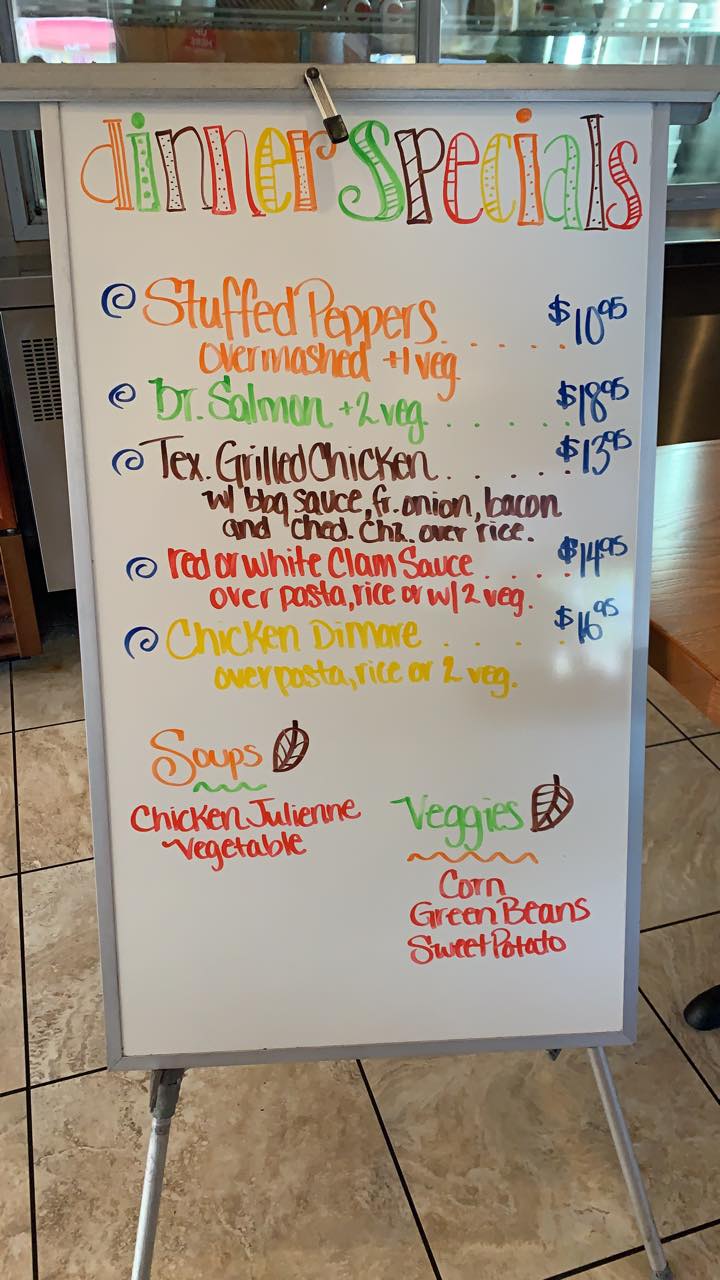 dinner specials
Stuffed Peppers. . . . . $10.95
over mashed +1 veg
Br. Salmon +2 veg . . . . . $18.95
Tex. Grilled Chicken . . . . $13.95
w/ bbq sauce, fr. onion, bacon
and ched. chz. over rice.
red or white Clam Sauce . . . . $14.95
over pasta, rice or w/ 2 veg.
Chicken DiMare . . . . $16.95
over pasta, rice or 2 veg.
Soups
Chicken Julienne
Vegetable
Veggies
Corn
Green Beans
Sweet Potato